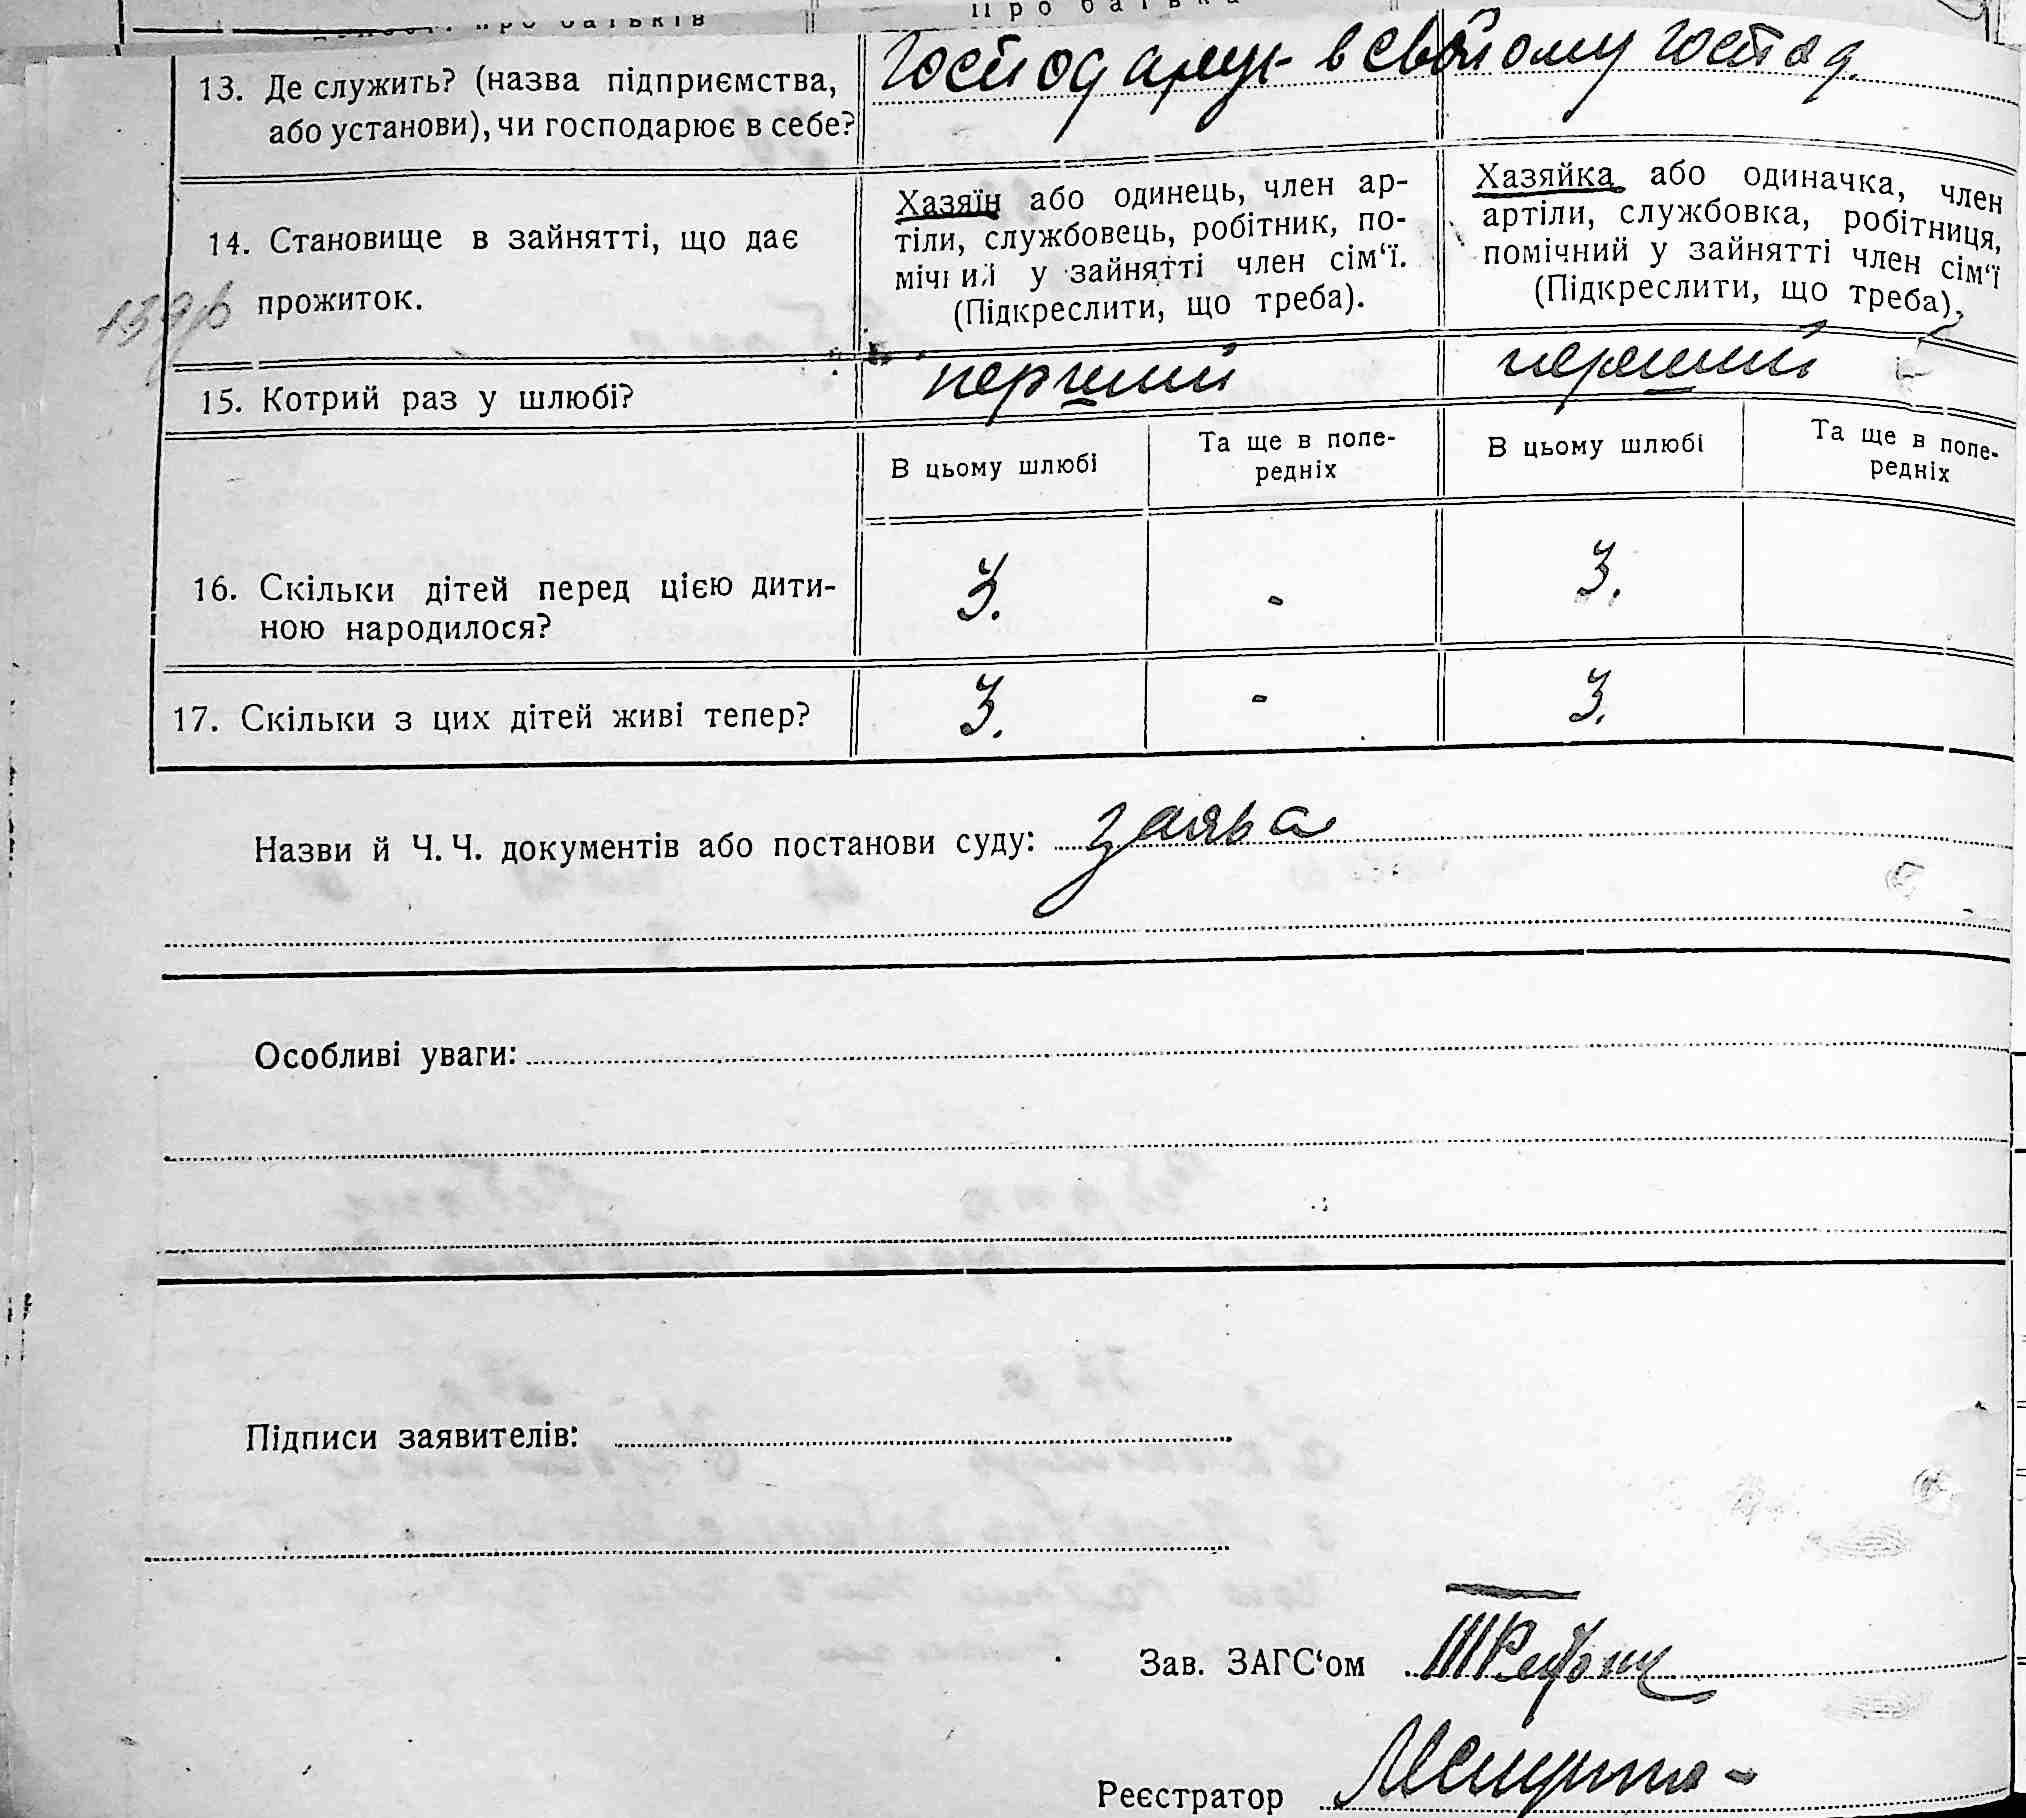 про батьків
Про батька
13. Де служить? (назва підприємства,
або установи), чи господарює в себе?
Господарує в свойому господ.
14. Становище в зайнятті, що дає
прожиток.
Хазяїн або одинець, член ар-
тіли, службовець, робітник, по-
мічний у зайнятті член сім‘ї.
(Підкреслити, що треба).
Хазяйка або одиначка, член
артіли, службовка, робітниця,
помічний у зайнятті член сім‘ї
(Підкреслити, що треба).
15. Котрий раз у шлюбі?
перший
перший
В цьому шлюбі
Та ще в попе-
редніх
В цьому шлюбі
Та ще в попе-
редніх
16. Скільки дітей перед цією дити-
ною народилося?
3. - 3.
17. Скільки з цих дітей живі тепер?
3. - 3.
Назви й Ч. Ч. документів або постанови суду: заява
Особливі уваги:
Підписи заявителів:
Зав. ЗАГС‘ом
Реєстратор